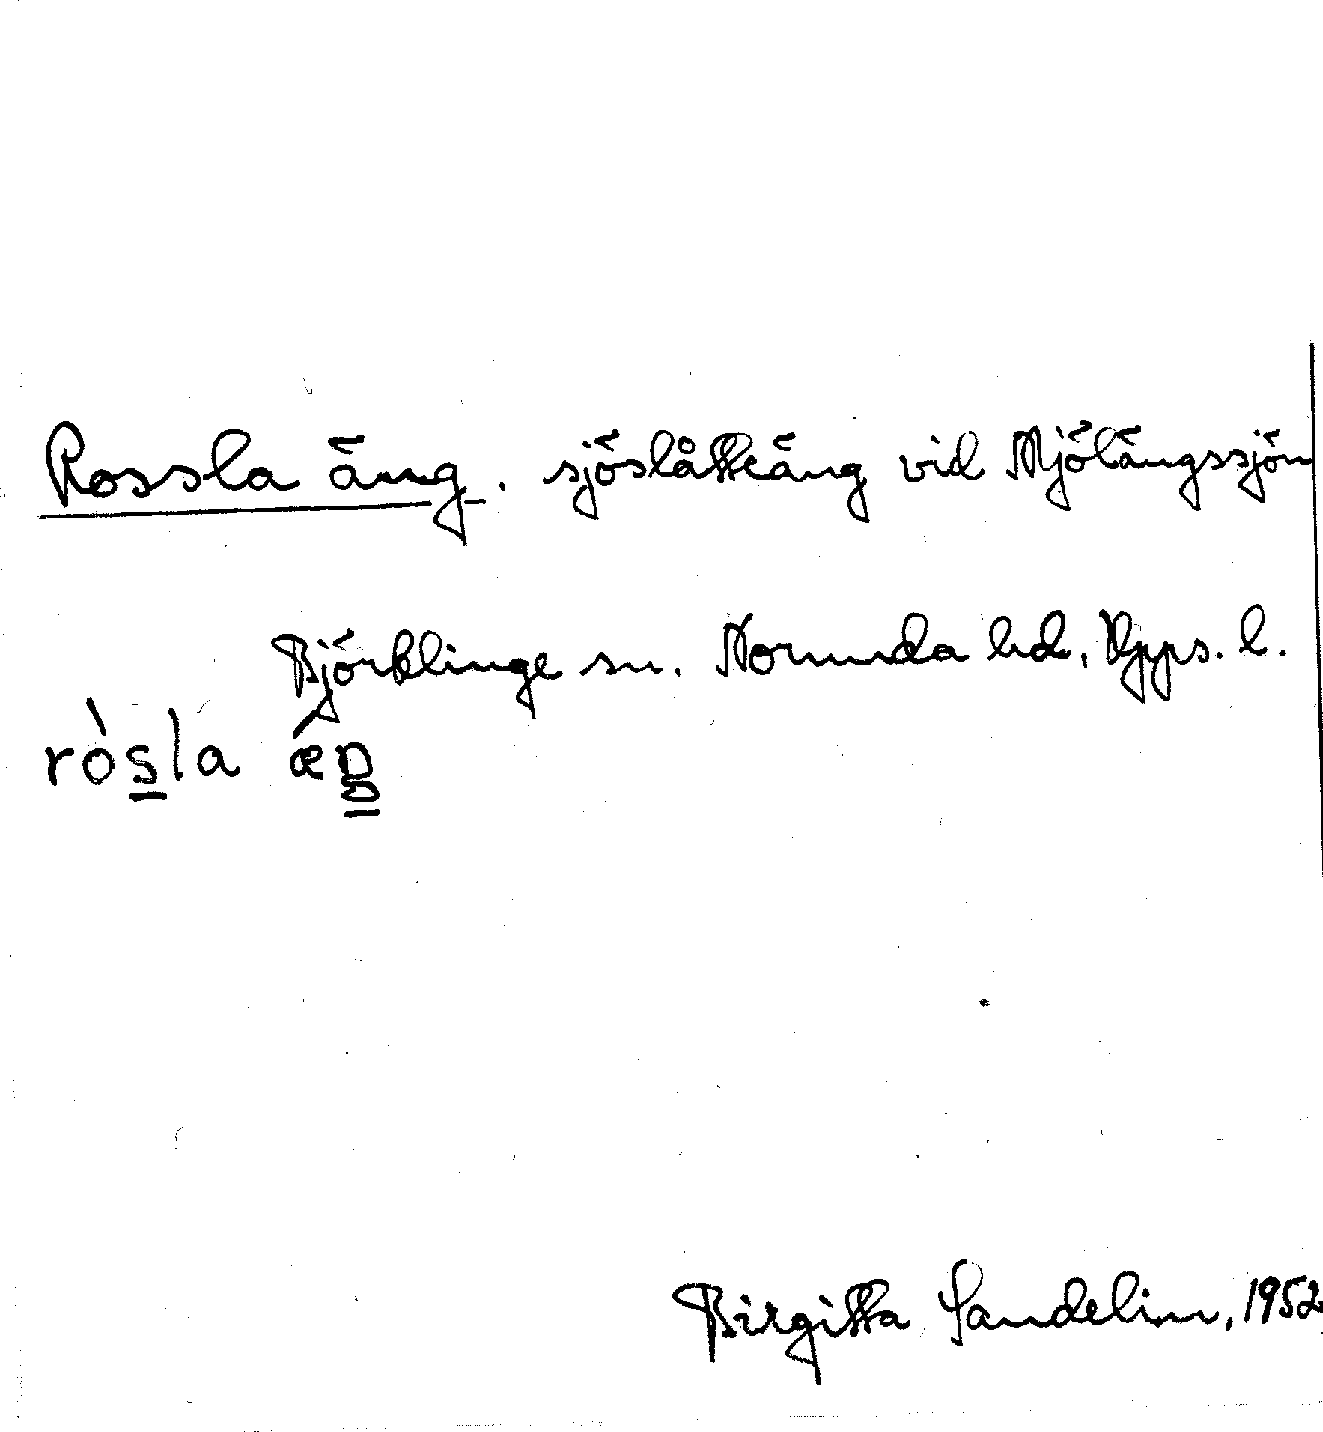 Rossla äng. sjöslåtteäng vid Mjölängssjön
Björklinge sn. Norunda hd, Upps. l.
ròs̲la ǽŋ̲
Birgitta Sandelin, 1952